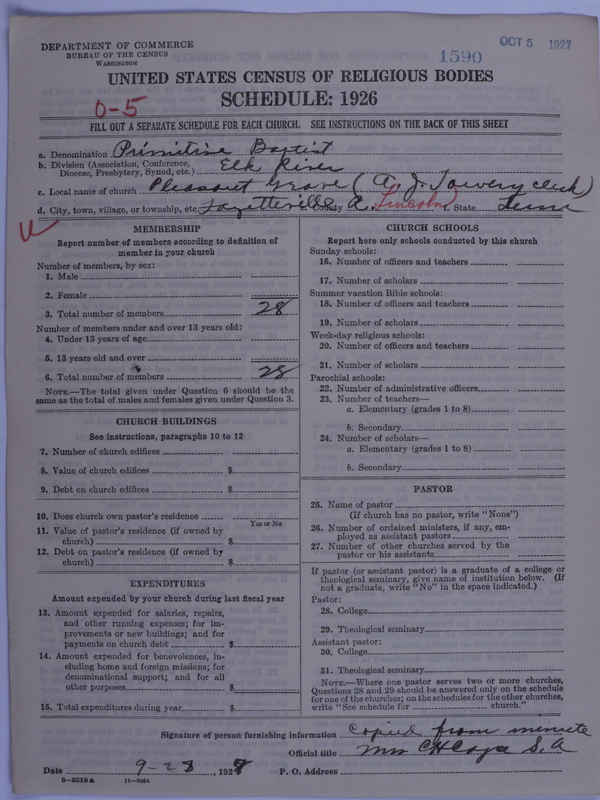 DEPARTMENT OF COMMERCE
BUREAU OF THE CENSUS
WASHINGTON
1590
OCT 5 1927
UNITED STATES CENSUS OF RELIGIOUS BODIES
SCHEDULE: 1926
0-5
FILL OUT A SEPARATE SCHEDULE FOR EACH CHURCH. SEE INSTRUCTIONS ON THE BACK OF THIS SHEET
a. Denomination Primitive Baptist
b. Division (Association, Conference, Diocese, Presbytery, Synod, etc.) Elk River
c. Local name of church Pleasant Grove (A. J. Towery clerk)
d. City, town, village, or township, etc. Fayetteville County Lincoln, State Tenn
MEMBERSHIP
Report number of members according to definition of
member in your church
Number of members, by sex:
1. Male
2. Female
3. Total number of members 28
Number of members under and over 13 years old:
4. Under 13 years of age
5. 13 years old and over
6. Total number of members 28
NOTE.—The total given under Question 6 should be the
same as the total of males and females given under Question 3.
CHURCH BUILDINGS
See instructions, paragraphs 10 to 12
7. Number of church edifices
8. Value of church edifices $
9. Debt on church edifices $
10. Does church own pastor's residence
Yes or No
11. Value of pastor's residence (if owned by
church) $
12. Debt on pastor's residence (if owned by
church) $
EXPENDITURES
Amount expended by your church during last fiscal year
13. Amount expended for salaries, repairs,
and other running expenses; for im-
provements or new buildings; and for
payments on church debt $
14. Amount expended for benevolences, in-
cluding home and foreign missions; for
denominational support; and for all
other purposes $
15. Total expenditures during year $
CHURCH SCHOOLS
Report here only schools conducted by this church
Sunday schools:
16. Number of officers and teachers
17. Number of scholars
Summer vacation Bible schools:
18. Number of officers and teachers
19. Number of scholars
Week-day religious schools:
20. Number of officers and teachers
21. Number of scholars
Parochial schools:
22. Number of administrative officers
23. Number of teachers—
a. Elementary (grades 1 to 8)
b. Secondary
24. Number of scholars—
a. Elementary (grades 1 to 8)
b. Secondary
PASTOR
25. Name of pastor
(If church has no pastor, write "None")
26. Number of ordained ministers, if any, em-
ployed as assistant pastors
27. Number of other churches served by the
pastor or his assistants
If pastor (or assistant pastor) is a graduate of a college or
theological seminary, give name of institution below. (If
not a graduate, write "No" in the space indicated.)
Pastor:
28. College
29. Theological seminary
Assistant pastor:
30. College
31. Theological seminary
NOTE.—Where one pastor serves two or more churches,
Questions 28 and 29 should be answered only on the schedule
for one of the churches; on the schedules for the other churches,
write "See schedule for church."
Signature of person furnishing information Copied from minute
Official title Mrs C H Cage S. A
Date 9-28, 1927 P. O. Address
8-5518 a 11-9034